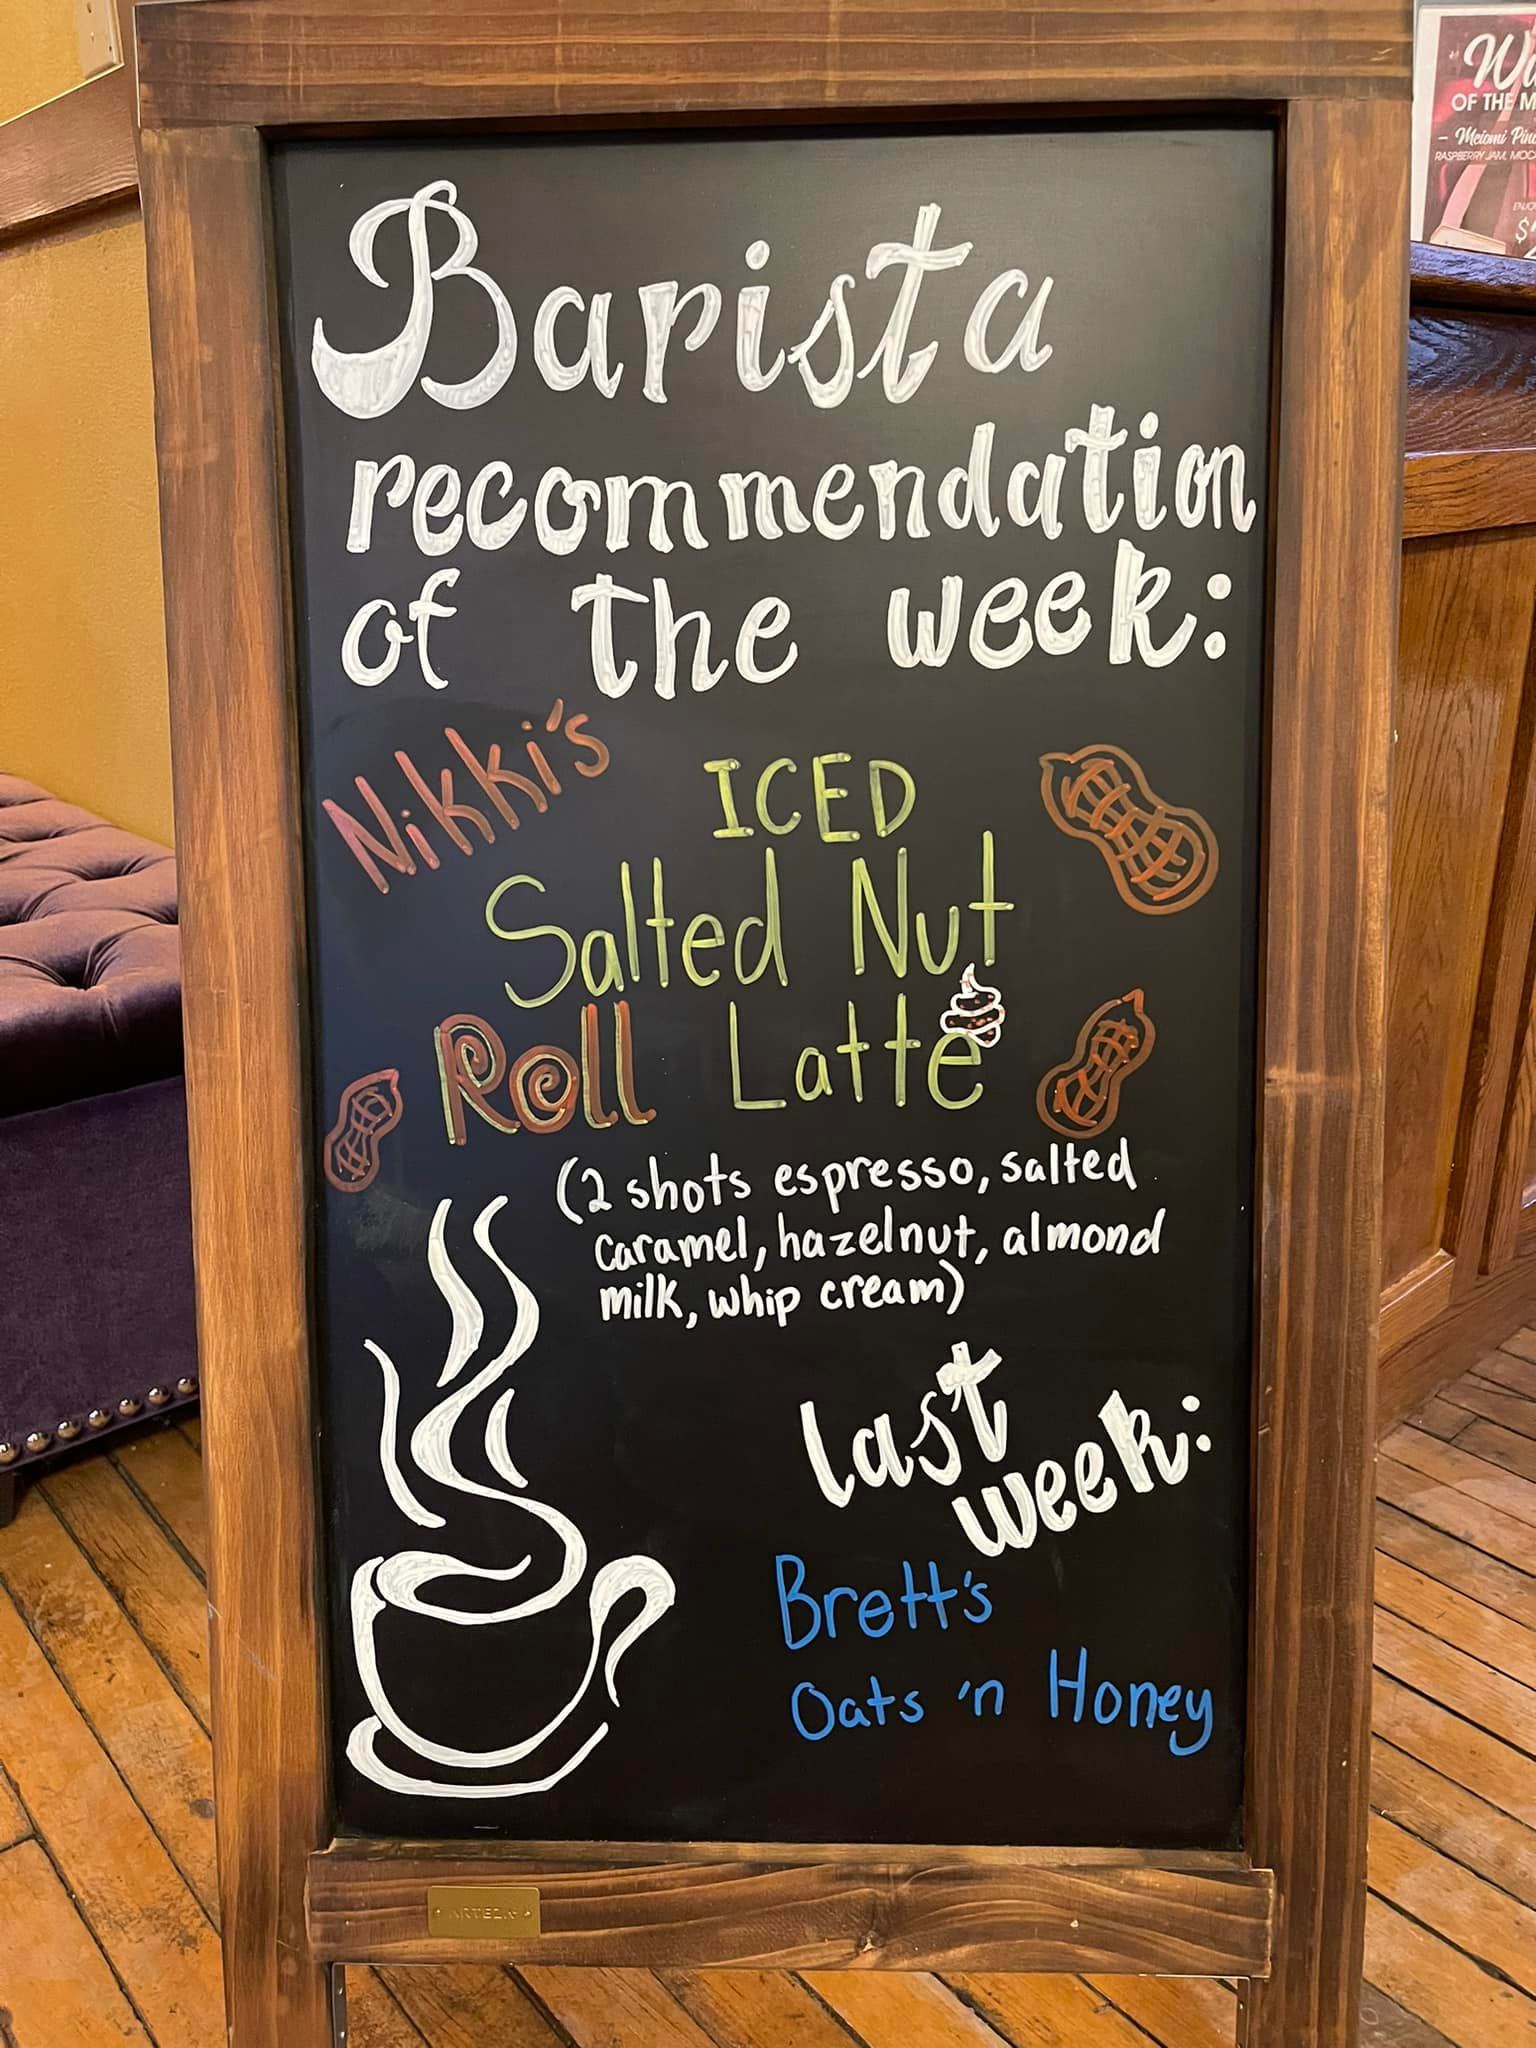 Barista
recommendation
of the week:
Nikki's
ICED
Salted Nut
Roll Latte
(2 shots espresso, salted
caramel, hazelnut, almond
milk, whip cream)
last
week:
Brett's
Oats 'n Honey
OF THE M
- Meiomi Pin
RASPBERRY JAM, MOC